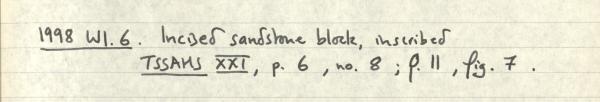 1998 WI.6. Incised sandstone block, inscribed
TSSAHS XXI, p. 6, no. 8; p. 11, fig. 7.